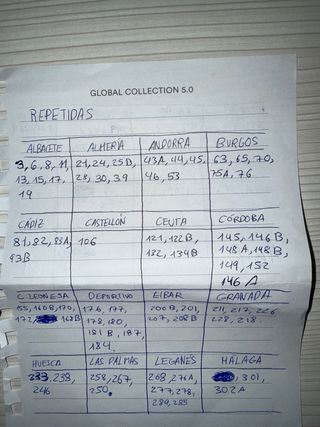 GLOBAL COLLECTION 5.0
REPETIDAS
ALBACETE ALMERÍA ANDORRA BURGOS
3, 6, 8, 11, 21, 24, 25B, 43A, 44, 45, 63, 65, 70,
13, 15, 17, 28, 30, 39 46, 53 75A, 76
19
CÁDIZ CASTELLÓN CEUTA CÓRDOBA
81, 82, 85A, 106 121, 122B, 145, 146B,
93B 132, 134B 148A, 148B,
149, 152
146A
C. LEONESA DEPORTIVO EIBAR GRANADA
160B, 170, 176, 177, 200B, 201, 211, 217, 226
172, 168B 178, 180, 207, 208B 228, 218.
181B, 187,
184.
HUESCA LAS PALMAS LEGANÉS MÁLAGA
233, 238, 258, 267, 268, 276A, 301,
246 250. 277, 278, 302A
289, 285